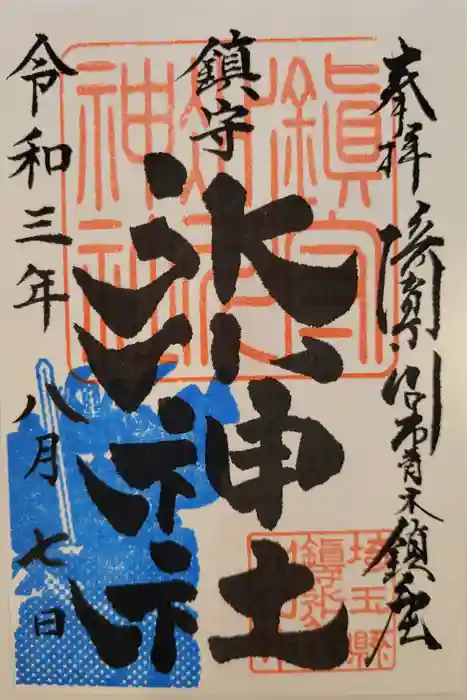 奉拝
川口市青木鎮座
鎮守
氷川神社
令和三年八月七日
鎮守
氷川
神社
埼玉縣
鎮守氷